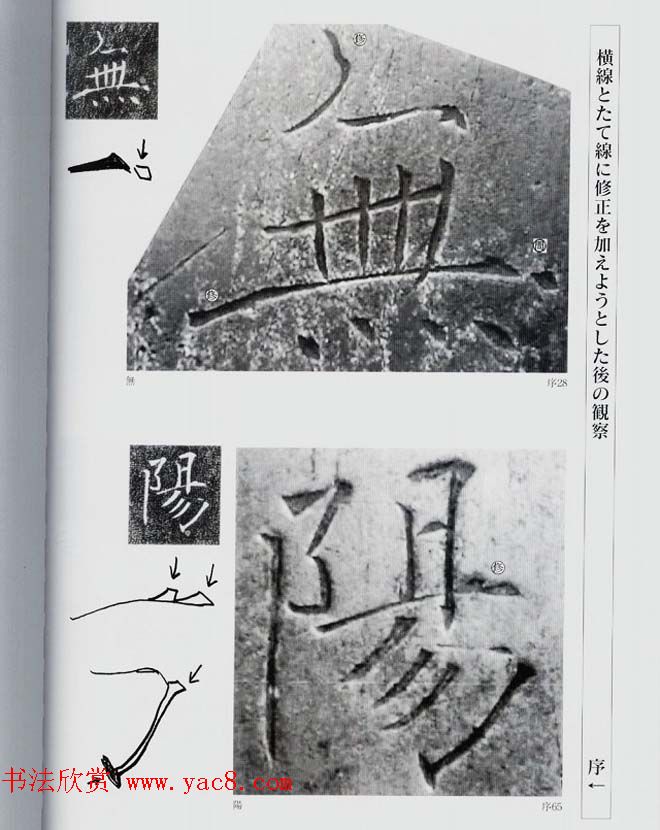 横線とたて線に修正を加えようとした後の観察
序←
無
修
無
修
無
序28
陽
陽
修
陽
序65
书法欣赏 www.yac8.com